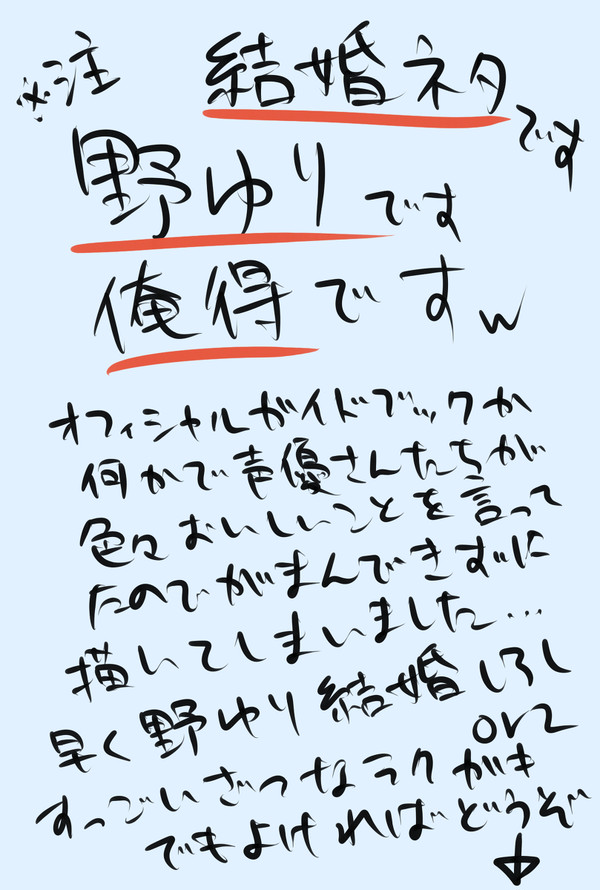 ※注 結婚ネタです
野ゆりです
俺得ですw
オフィシャルガイドブックか
何かで声優さんたちが
色々おいしいことを言って
たのでがまんできずに
描いてしまいました…
早く野ゆり結婚しろし
orz
すっごいざつなラクガキ
でもよければどうぞ
↓